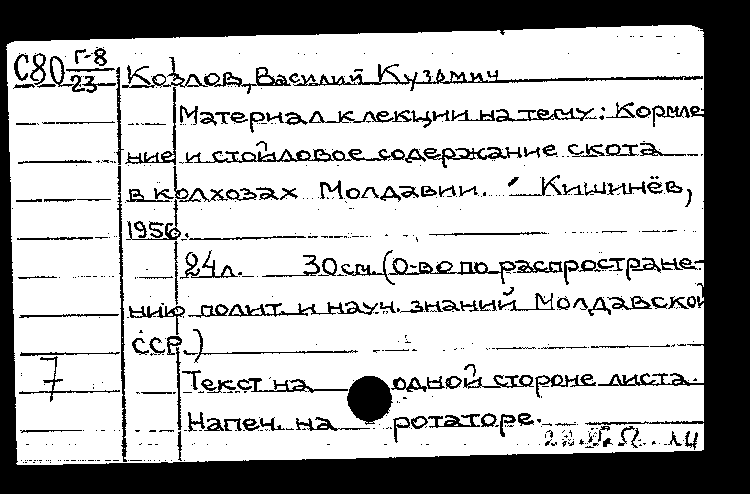 С80 Г-8
23
Козлов, Василий Кузьмич
Материал к лекции на тему: Кормле-
ние и стойловое содержание скота
в колхозах Молдавии. Кишинёв,
1956.
24л. 30см. (О-во по распростране-
нию полит. и науч. знаний Молдавской
ССР.)
7
Текст на одной стороне листа.
Напеч. на ротаторе.